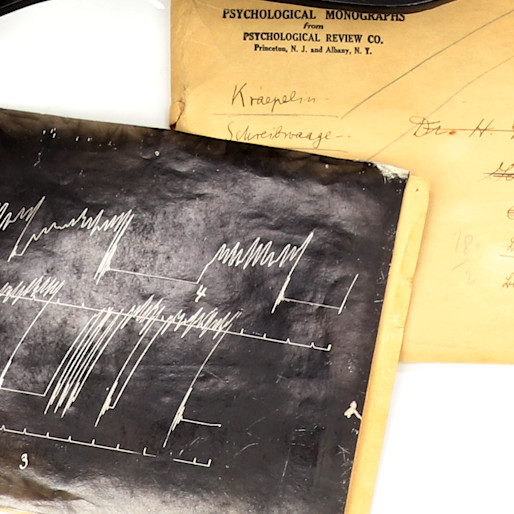 PSYCHOLOGICAL MONOGRAPHS
From
PSYCHOLOGICAL REVIEW CO.
Princeton, N. J. and Albany, N. Y.
Kraepelin
Schreibwaage
Dr. H.
4
3